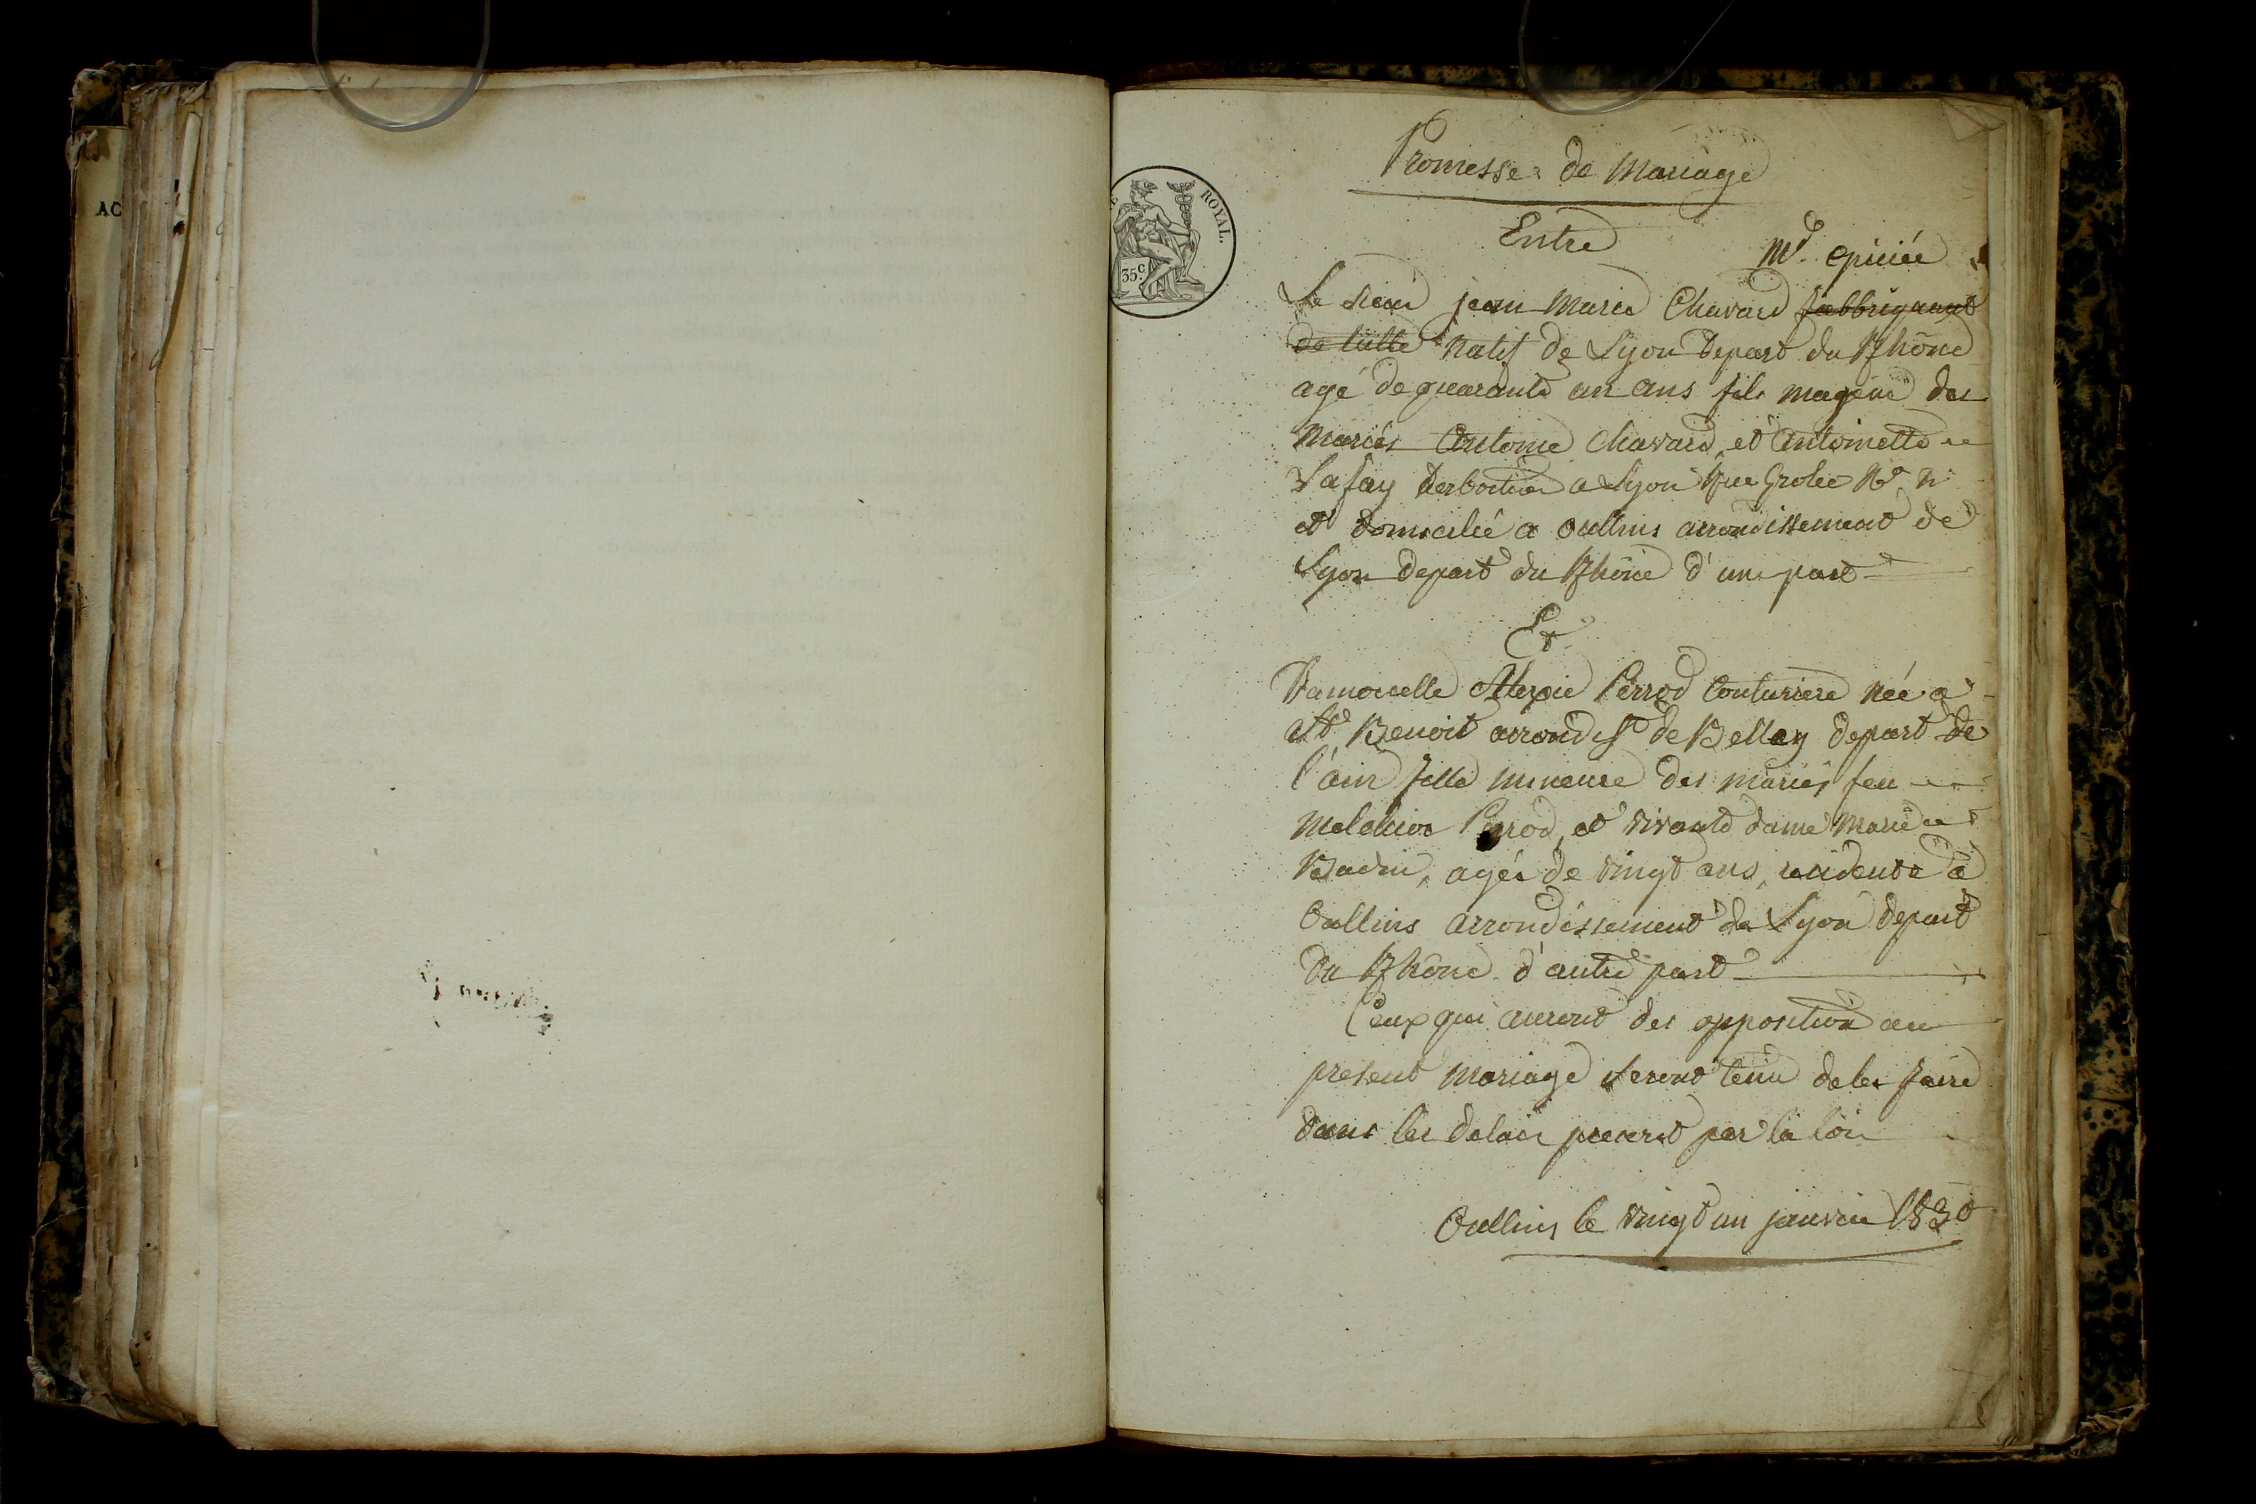 AC
ROYAL.
35.c
Promesse de Mariage
Entre
Md. epiciée
Le sieur jean Marie Chavard fabbriquant
de tulle natif de Lyon Depart du Rhône
agé de quarante un ans fils majeur des
Mariés Antoine Chavard, et antoinette
Lafay a Lyon Rue Grolée No
et domicilié a oullins arrondissement de
Lyon depart du Rhône d'une part
Et
Damoiselle Alexie Perrod Couturiere née a
St Benoit arrondist de Belley depart de
l'ain fille mineure des mariés feu
melchior Perrod, et vivante dame Marie
Badin, agée de vingt ans, residente à
Oullins arrondissement de Lyon depart
du Rhône d'autre part
Ceux qui auront des opposition au
present mariage seront tenu de les faire
dans les delais prescrit par la loi
Oullins le vingt un janvier 1830